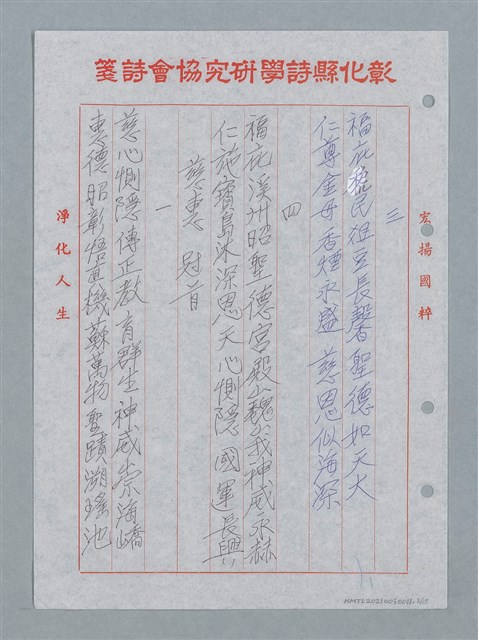 彰化縣詩學研究協會詩箋
宏揚國粹
三
福庇號民祖宮長馨聖德如天大
仁尊金母香煙永盛 慈恩似海深
四
福庇溪州昭聖德宮殿巍峨神威永赫
仁施寶島沐深恩天心惻隱 國運長興
慈惠 冠首
一
慈心惻隱傳正教 育群生神威崇海嶠
惠德昭彰悟玄機蘇萬物聖蹟溯瑤池
淨化人生